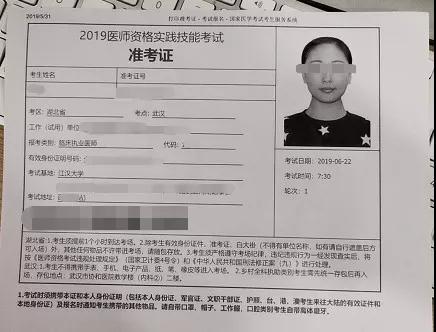 2019/5/31
打印准考证 - 考试报名 - 国家医学考试考生服务系统
2019医师资格实践技能考试
准考证
考生姓名
准考证号
考区: 湖北省 考点: 武汉
工作（试用）单位
报考类别: 临床执业医师 代码:
有效身份证明号码:
考试基地: 江汉大学
考试地址:
考试日期: 2019-06-22
考试时间: 7:30
轮次: 1
湖北省:1.考生须提前1个小时到达考场。2.除考生有效身份证件、准考证、白大褂（不得有单位名称，如有请自行遮盖后方
可入场）外，其他任何物品不许带进考场，请随包存放。3.考生须严格遵守考场纪律，违纪违规行为一经发现查实后，将
按《医师资格考试违规处理规定》（国家卫计委4号令）和《中华人民共和国刑法修正案（九）》进行处理。
武汉:1.考生不得携带手表、手机、电子产品、纸、笔、橡皮等进入考场。2.乡村全科执业助理类别考生需先统一存包后再入
场，存包地点：武汉市协和医院教学楼（内科②）二楼。
1.考试时须携带本证和本人身份证明（包括本人身份证、军官证、文职干部证、护照、台、港、澳考生来往大陆的有效证件和
本地身份证明）及报名时通知考生携带的其他物品，请自带口罩、帽子、工作服，口腔类别考生自带离体磨牙。